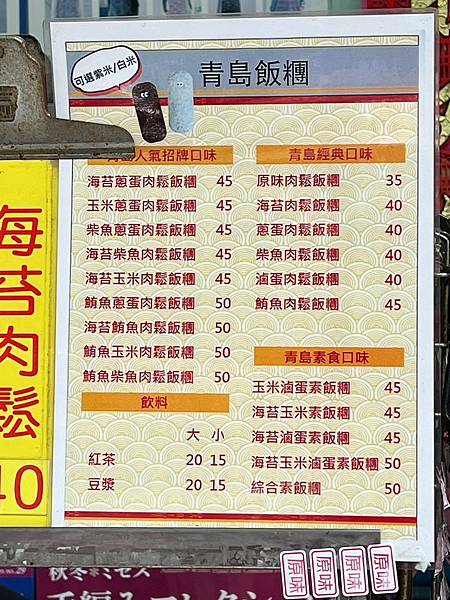 可選紫米/白米
青島飯糰
青島人氣招牌口味
海苔蔥蛋肉鬆飯糰 45
玉米蔥蛋肉鬆飯糰 45
柴魚蔥蛋肉鬆飯糰 45
海苔柴魚肉鬆飯糰 45
海苔玉米肉鬆飯糰 45
鮪魚蔥蛋肉鬆飯糰 50
海苔鮪魚肉鬆飯糰 50
鮪魚玉米肉鬆飯糰 50
鮪魚柴魚肉鬆飯糰 50
飲料
大 小
紅茶 20 15
豆漿 20 15
青島經典口味
原味肉鬆飯糰 35
海苔肉鬆飯糰 40
蔥蛋肉鬆飯糰 40
柴魚肉鬆飯糰 40
滷蛋肉鬆飯糰 40
鮪魚肉鬆飯糰 45
青島素食口味
玉米滷蛋素飯糰 45
海苔玉米素飯糰 45
海苔滷蛋素飯糰 45
海苔玉米滷蛋素飯糰 50
綜合素飯糰 50
海苔肉鬆
40
原味
原味
原味
原味
秋冬ミセス